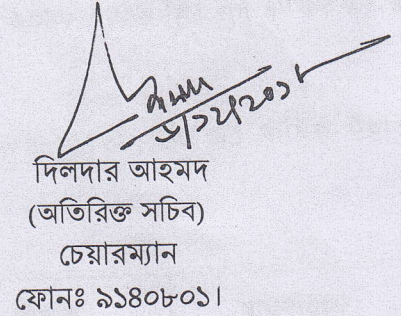 দিলদার আহমদ
(অতিরিক্ত সচিব)
চেয়ারম্যান
ফোনঃ ৯১৪০৮০১।